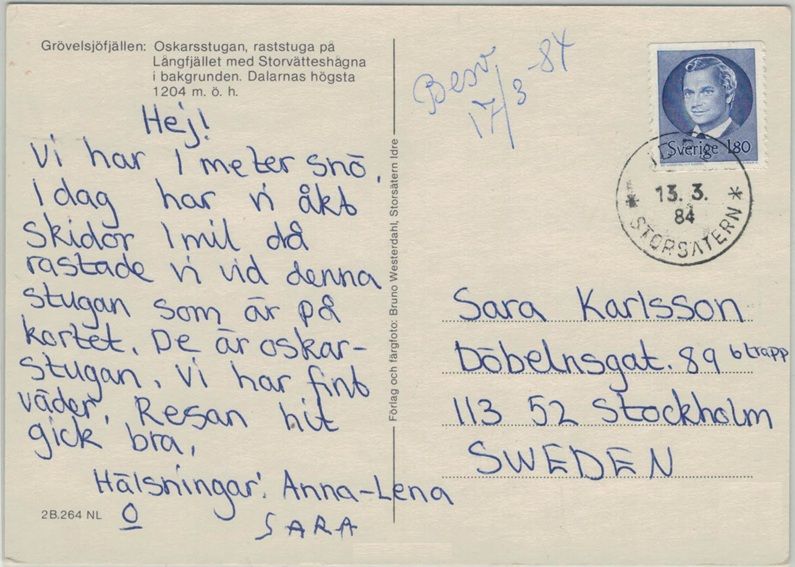 Grövelsjöfjällen: Oskarsstugan, raststuga på
Långfjället med Storvätteshågna
i bakgrunden. Dalarnas högsta
1204 m. ö. h.
Hej!
Vi har 1 meter snö.
Idag har vi åkt
skidor 1 mil då
rastade vi vid denna
stugan som är på
kortet. De är oskar-
stugan. Vi har fint
väder. Resan hit
gick bra.
Hälsningar: Anna-Lena
O
SARA
2B.264 NL
Förlag och färgfoto: Bruno Westerdahl, Storsätern Idre
Besv
17/3 -84
Sverige 180
13. 3.
84
STORSÄTERN
Sara Karlsson
Döbelnsgat. 89 6 trapp
113 52 Stockholm
SWEDEN